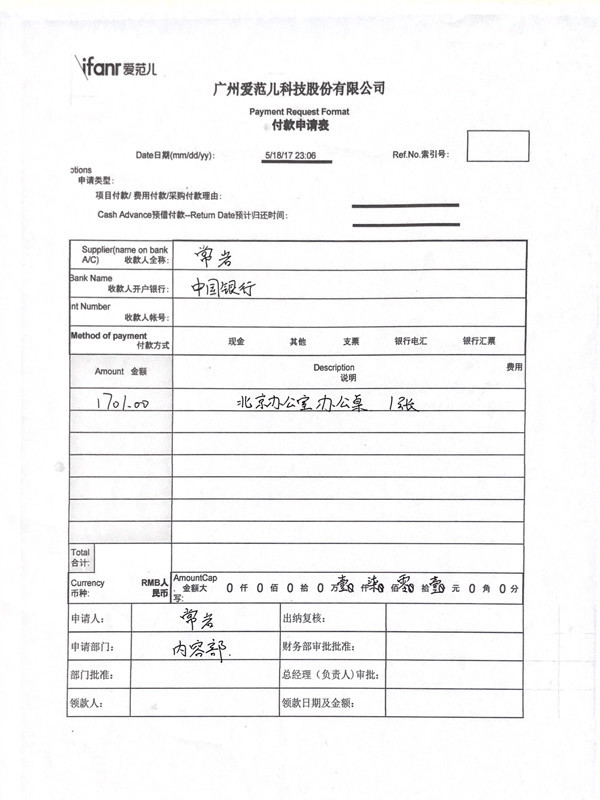 ifanr 爱范儿
广州爱范儿科技股份有限公司
Payment Request Format
付款申请表
Date日期(mm/dd/yy): 5/18/17 23:06 Ref.No.索引号:
ptions
申请类型:
项目付款/ 费用付款/采购付款理由:
Cash Advance预借付款--Return Date预计归还时间:
Supplier(name on bank
A/C) 收款人全称: 常岩
Bank Name
收款人开户银行: 中国银行
nt Number
收款人帐号:
Method of payment
付款方式 现金 其他 支票 银行电汇 银行汇票
Amount 金额 Description 费用
说明
1701.00 北京办公室办公桌 1张
Total
合计:
Currency RMB人 AmountCap
币种: 民币 . 金额大 0 仟 0 佰 0 拾 0 万 壹 仟 柒 佰 零 拾 壹 元 0 角 0 分
写:
申请人: 常岩 出纳复核:
申请部门: 内容部. 财务部审批批准:
部门批准: 总经理（负责人)审批:
领款人: 领款日期及金额: